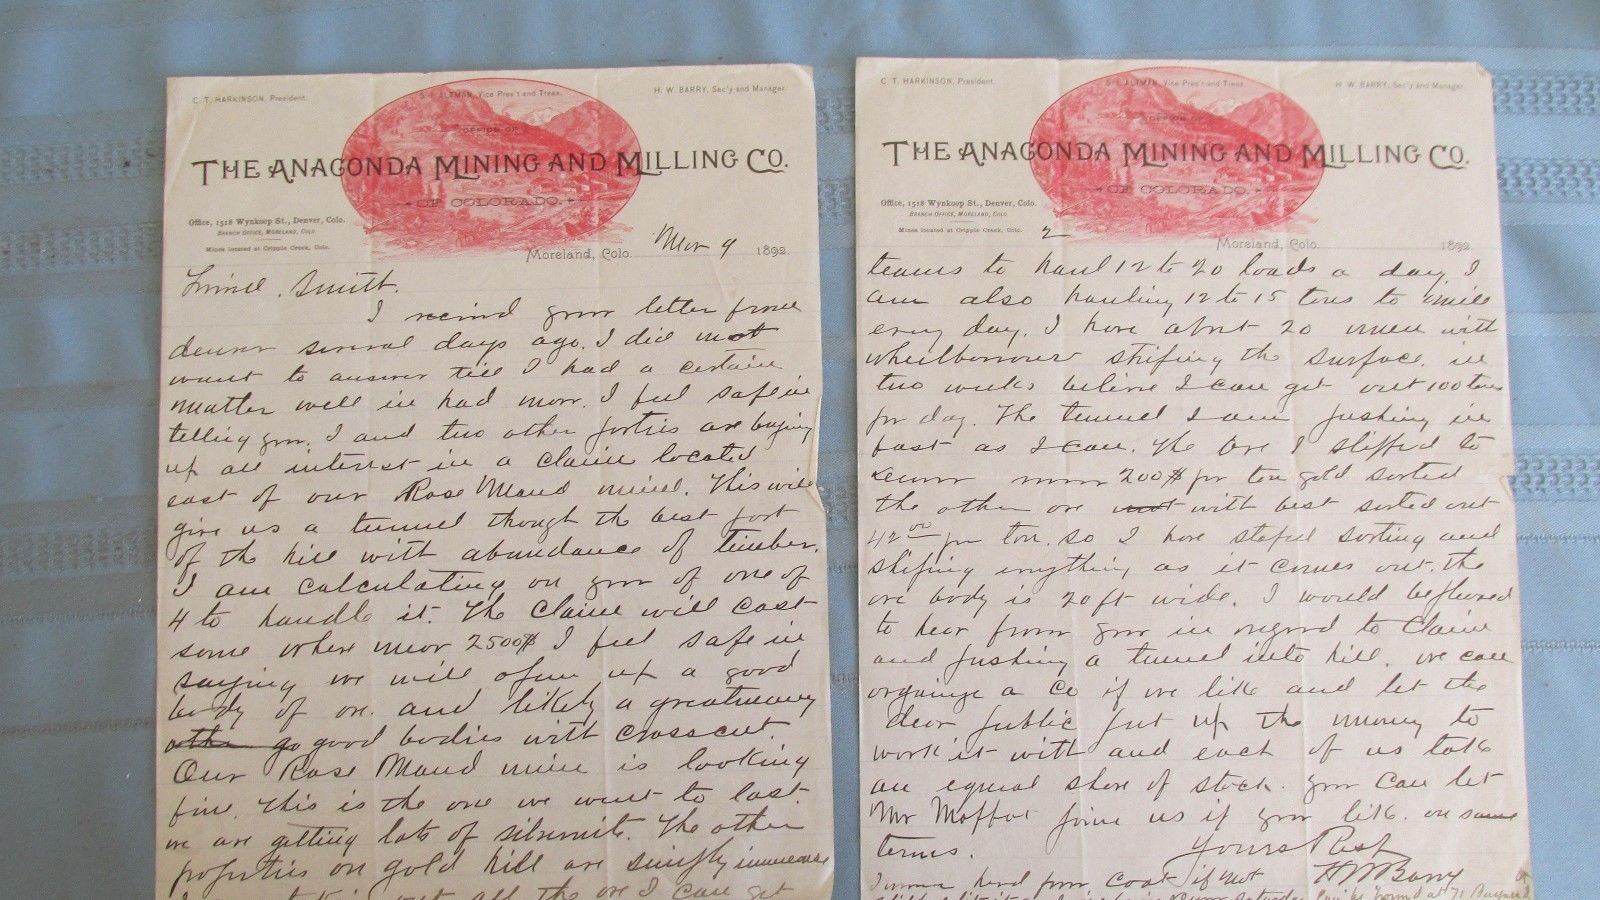 C. T. HARKINSON, President.
S. L. ALTMAN, Vice Pres't and Treas.
H. W. BARRY, Sec'y and Manager.
OFFICE OF
THE ANACONDA MINING AND MILLING CO.
OF COLORADO.
Office, 1518 Wynkoop St., Denver, Colo.
BRANCH OFFICE, MORELAND, COLO.
Mines located at Cripple Creek, Colo.
Moreland, Colo. Mar 9 1892
Friend Smith.
I recivd your letter from
denver several days ago. I did not
want to answer till I had a certain
matter well in had now. I feel safe in
telling you. I and two other parties are buying
up an interest in a claim located
east of our Rose Maud mine. This will
give us a tunnel though the best part
of the hill with abundance of timber.
I am calculating on you of one of
4 to handle it. The claim will cost
some where near 2500$ I feel safe in
saying we will open up a good
body of ore and likely a great many
other go good bodies with crosscut.
Our Rose Maud mine is looking
fine. This is the one we want to last
we are getting lots of silvernite. The other
properties on gold hill are simply immense
out all the ore I can get
C. T. HARKINSON, President.
S. L. ALTMAN, Vice Pres't and Treas.
H. W. BARRY, Sec'y and Manager.
OFFICE OF
THE ANACONDA MINING AND MILLING CO.
OF COLORADO.
Office, 1518 Wynkoop St., Denver, Colo.
BRANCH OFFICE, MORELAND, COLO.
Mines located at Cripple Creek, Colo.
2
Moreland, Colo. 1892
teams to haul 12 to 20 loads a day I
am also hauling 12 to 15 tons to mill
every day. I have about 20 men with
wheelbarrows striping the surface. in
two weeks believe I can get out 100 tons
pr day. The tunnel I am pushing in
fast as I can. The ore I shipped to
denver 200$ pr ton gold sorted
the other ore not with best sorted out
42 00 pr ton. so I have stoped sorting and
shiping everything as it comes out. the
ore body is 20 ft wide. I would be pleased
to hear from you in regard to claim
and pushing a tunnel into hill. we can
organize a Co if we like and let the
dear public put up the money to
work it with and each of us take
an equal share of stock. you can let
Mr Moffat join us if you like. on same
terms.
Yours Resp
H W Barry